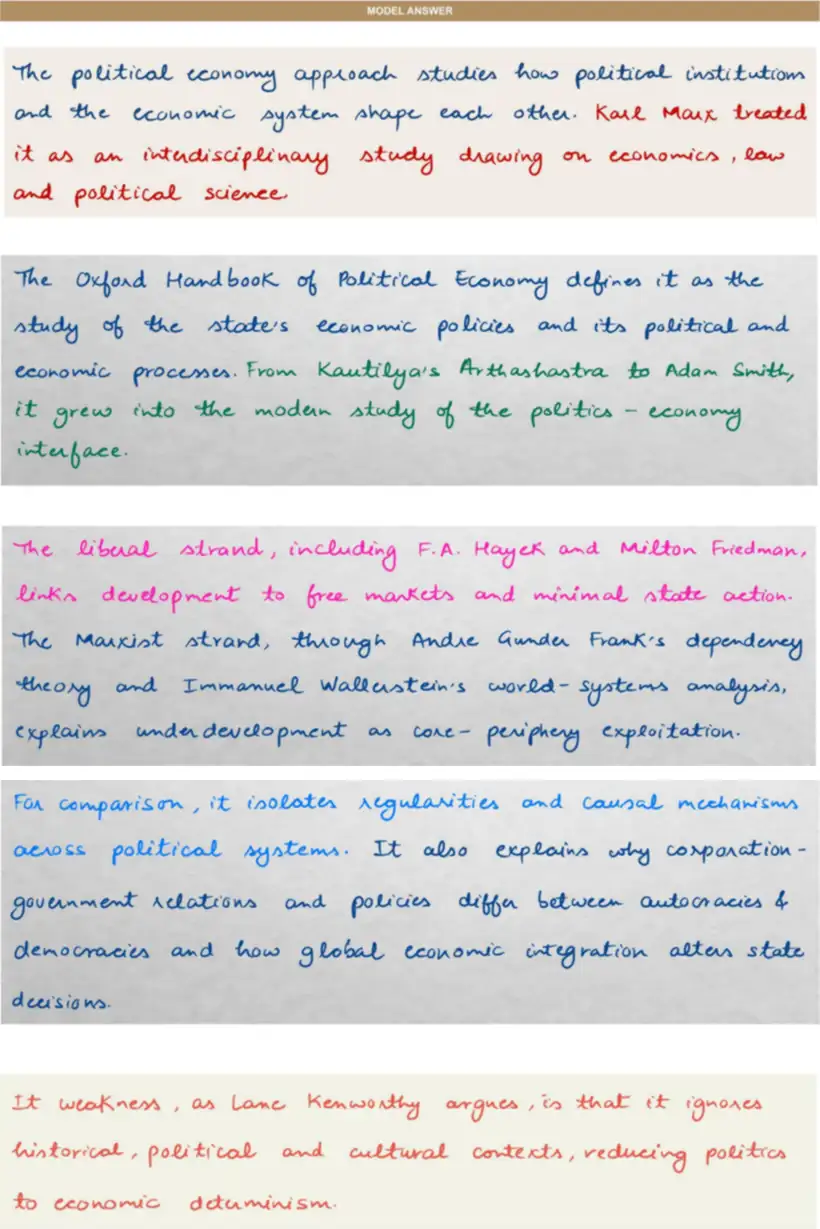 MODEL ANSWER
The political economy approach studies how political institutions
and the economic system shape each other. Karl Marx treated
it as an interdisciplinary study drawing on economics, law
and political science.
The Oxford Handbook of Political Economy defines it as the
study of the state's economic policies and its political and
economic processes. From Kautilya's Arthashastra to Adam Smith,
it grew into the modern study of the politics - economy
interface.
The liberal strand, including F.A. Hayek and Milton Friedman,
links development to free markets and minimal state action.
The Marxist strand, through Andre Gunder Frank's dependency
theory and Immanuel Wallerstein's world-systems analysis,
explains underdevelopment as core- periphery exploitation.
For comparison, it isolates regularities and causal mechanisms
across political systems. It also explains why corporation-
government relations and policies differ between autocracies &
democracies and how global economic integration alters state
decisions.
It weakness, as Lane Kenworthy argues, is that it ignores
historical, political and cultural contexts, reducing politics
to economic determinism.